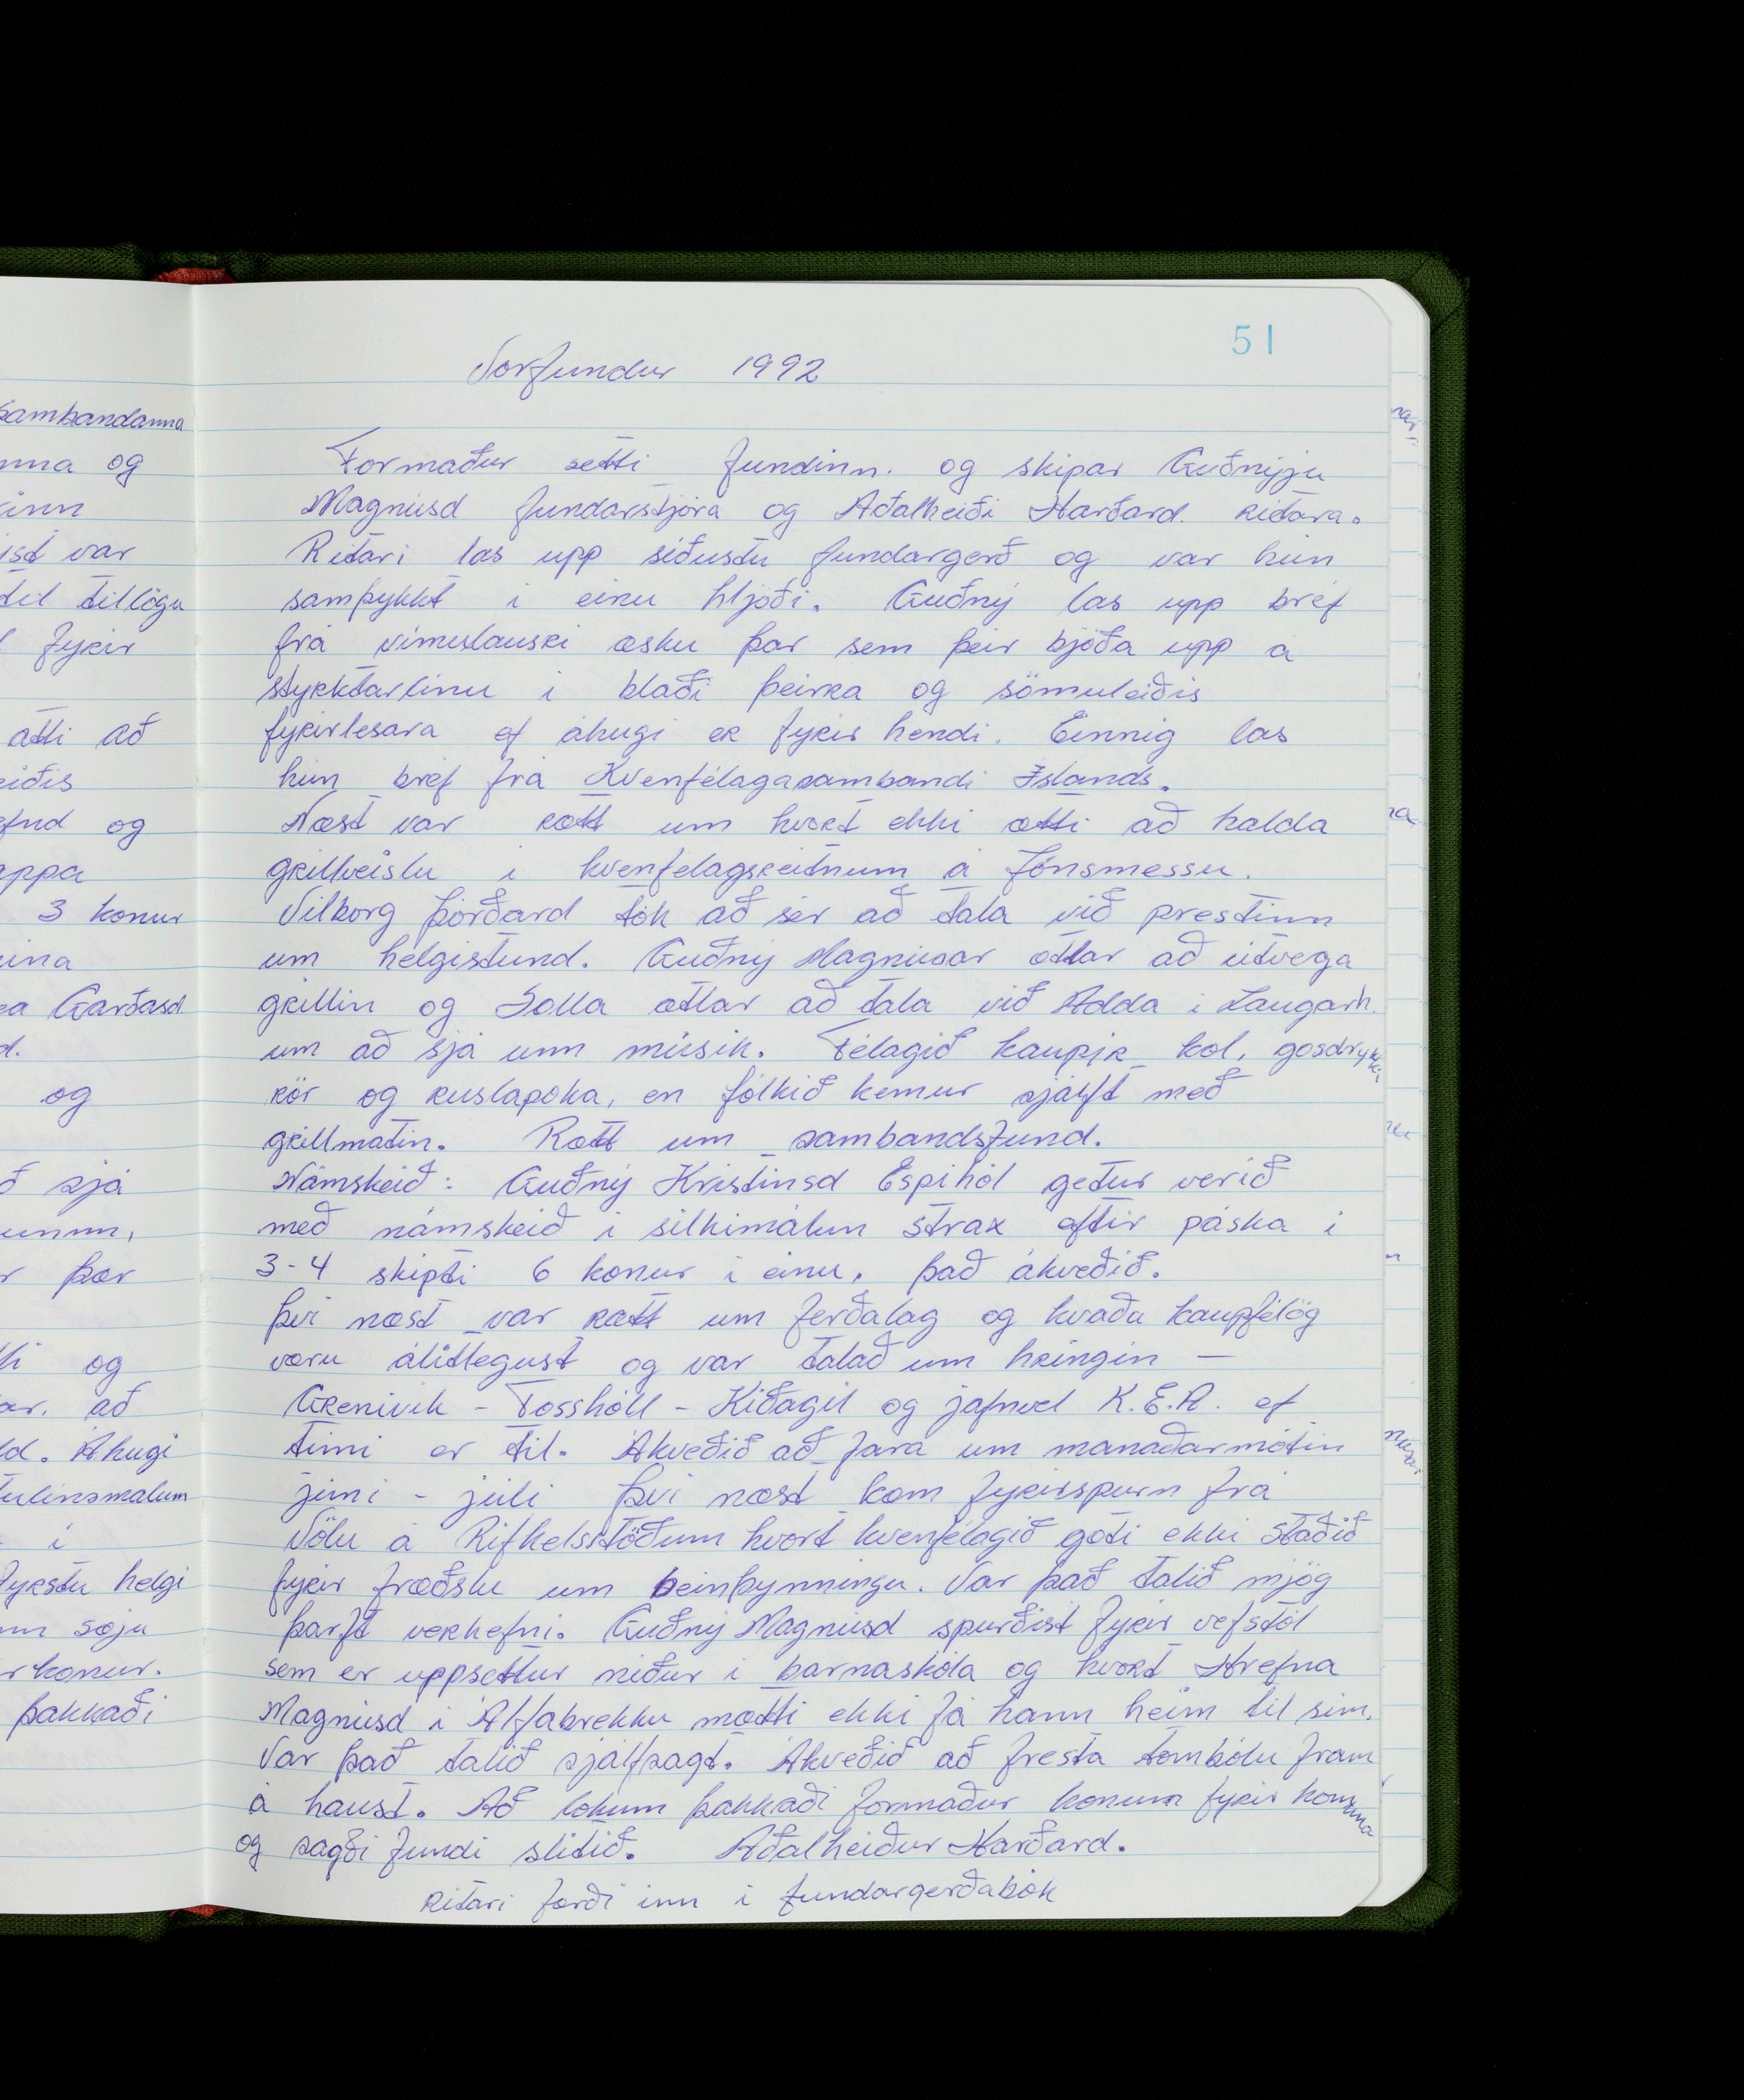 51
Vorfundur 1992
Formaður setti fundinn. og skipar Guðnýju
Magnúsd fundarstjóra og Aðalheiði Harðard. ritara.
Ritari las upp síðustu fundargerð og var hún
samþykkt í einu hljóði. Guðný las upp bréf
frá vímulausri æsku þar sem þeir bjóða upp á
styrktarlínu í blaði þeirra og sömuleiðis
fyrirlesara ef áhugi er fyrir hendi. Einnig las
hún bréf frá Kvenfélagasambandi Íslands.
Næst var rætt um hvort ekki ætti að halda
grillveislu í kvenfélagsreitnum á Jónsmessu.
Vilborg Þórðard tók að sér að tala við prestinn
um helgistund. Guðný Magnúsar ætlar að útvega
grillin og Solla ætlar að tala við Adda í Laugarh.
um að sjá umm músik. Félagið kaupir kol, gosdrykki,
rör og ruslapoka, en fólkið kemur sjálft með
grillmatin. Rætt um sambandsfund.
Námskeið: Guðný Kristinsd Espihól getur verið
með námskeið í silkimálun strax eftir páska í
3-4 skipti 6 konur í einu. það ákveðið.
Því næst var rætt um ferðalag og hvaða kaupfélög
væru álitlegust og var talað um hringin –
Grenivík - Fosshóll - Kiðagil og jafnvel K.E.A. ef
tími er til. Ákveðið að fara um mánaðarmótin
júní - júlí Því næst kom fyrirspurn frá
Völu á Rifkelsstöðum hvort kvenfélagið gæti ekki staðið
fyrir fræðslu um beinþynningu. Var það talið mjög
þarft verkefni. Guðný Magnúsd spurðist fyrir vefstól
sem er uppsettur niður í barnaskóla og hvort Hrefna
Magnúsd í Álfabrekku mætti ekki fá hann heim til sím.
Var það talið sjálfsagt. Ákveðið að fresta tombólu fram
á haust. Að lokum þakkaði formaður konum fyrir komuna
og sagði fundi slitið. Aðalheiður Harðard.
ritari færði inn í fundargerðabók
sambandanna
og
var
til tillögu
fyrir
átti að
og
3 konur
Garðasd
d.
og
sjá
þær
og
að
Áhugi
í
fyrstu helgi
sæju
þakkaði